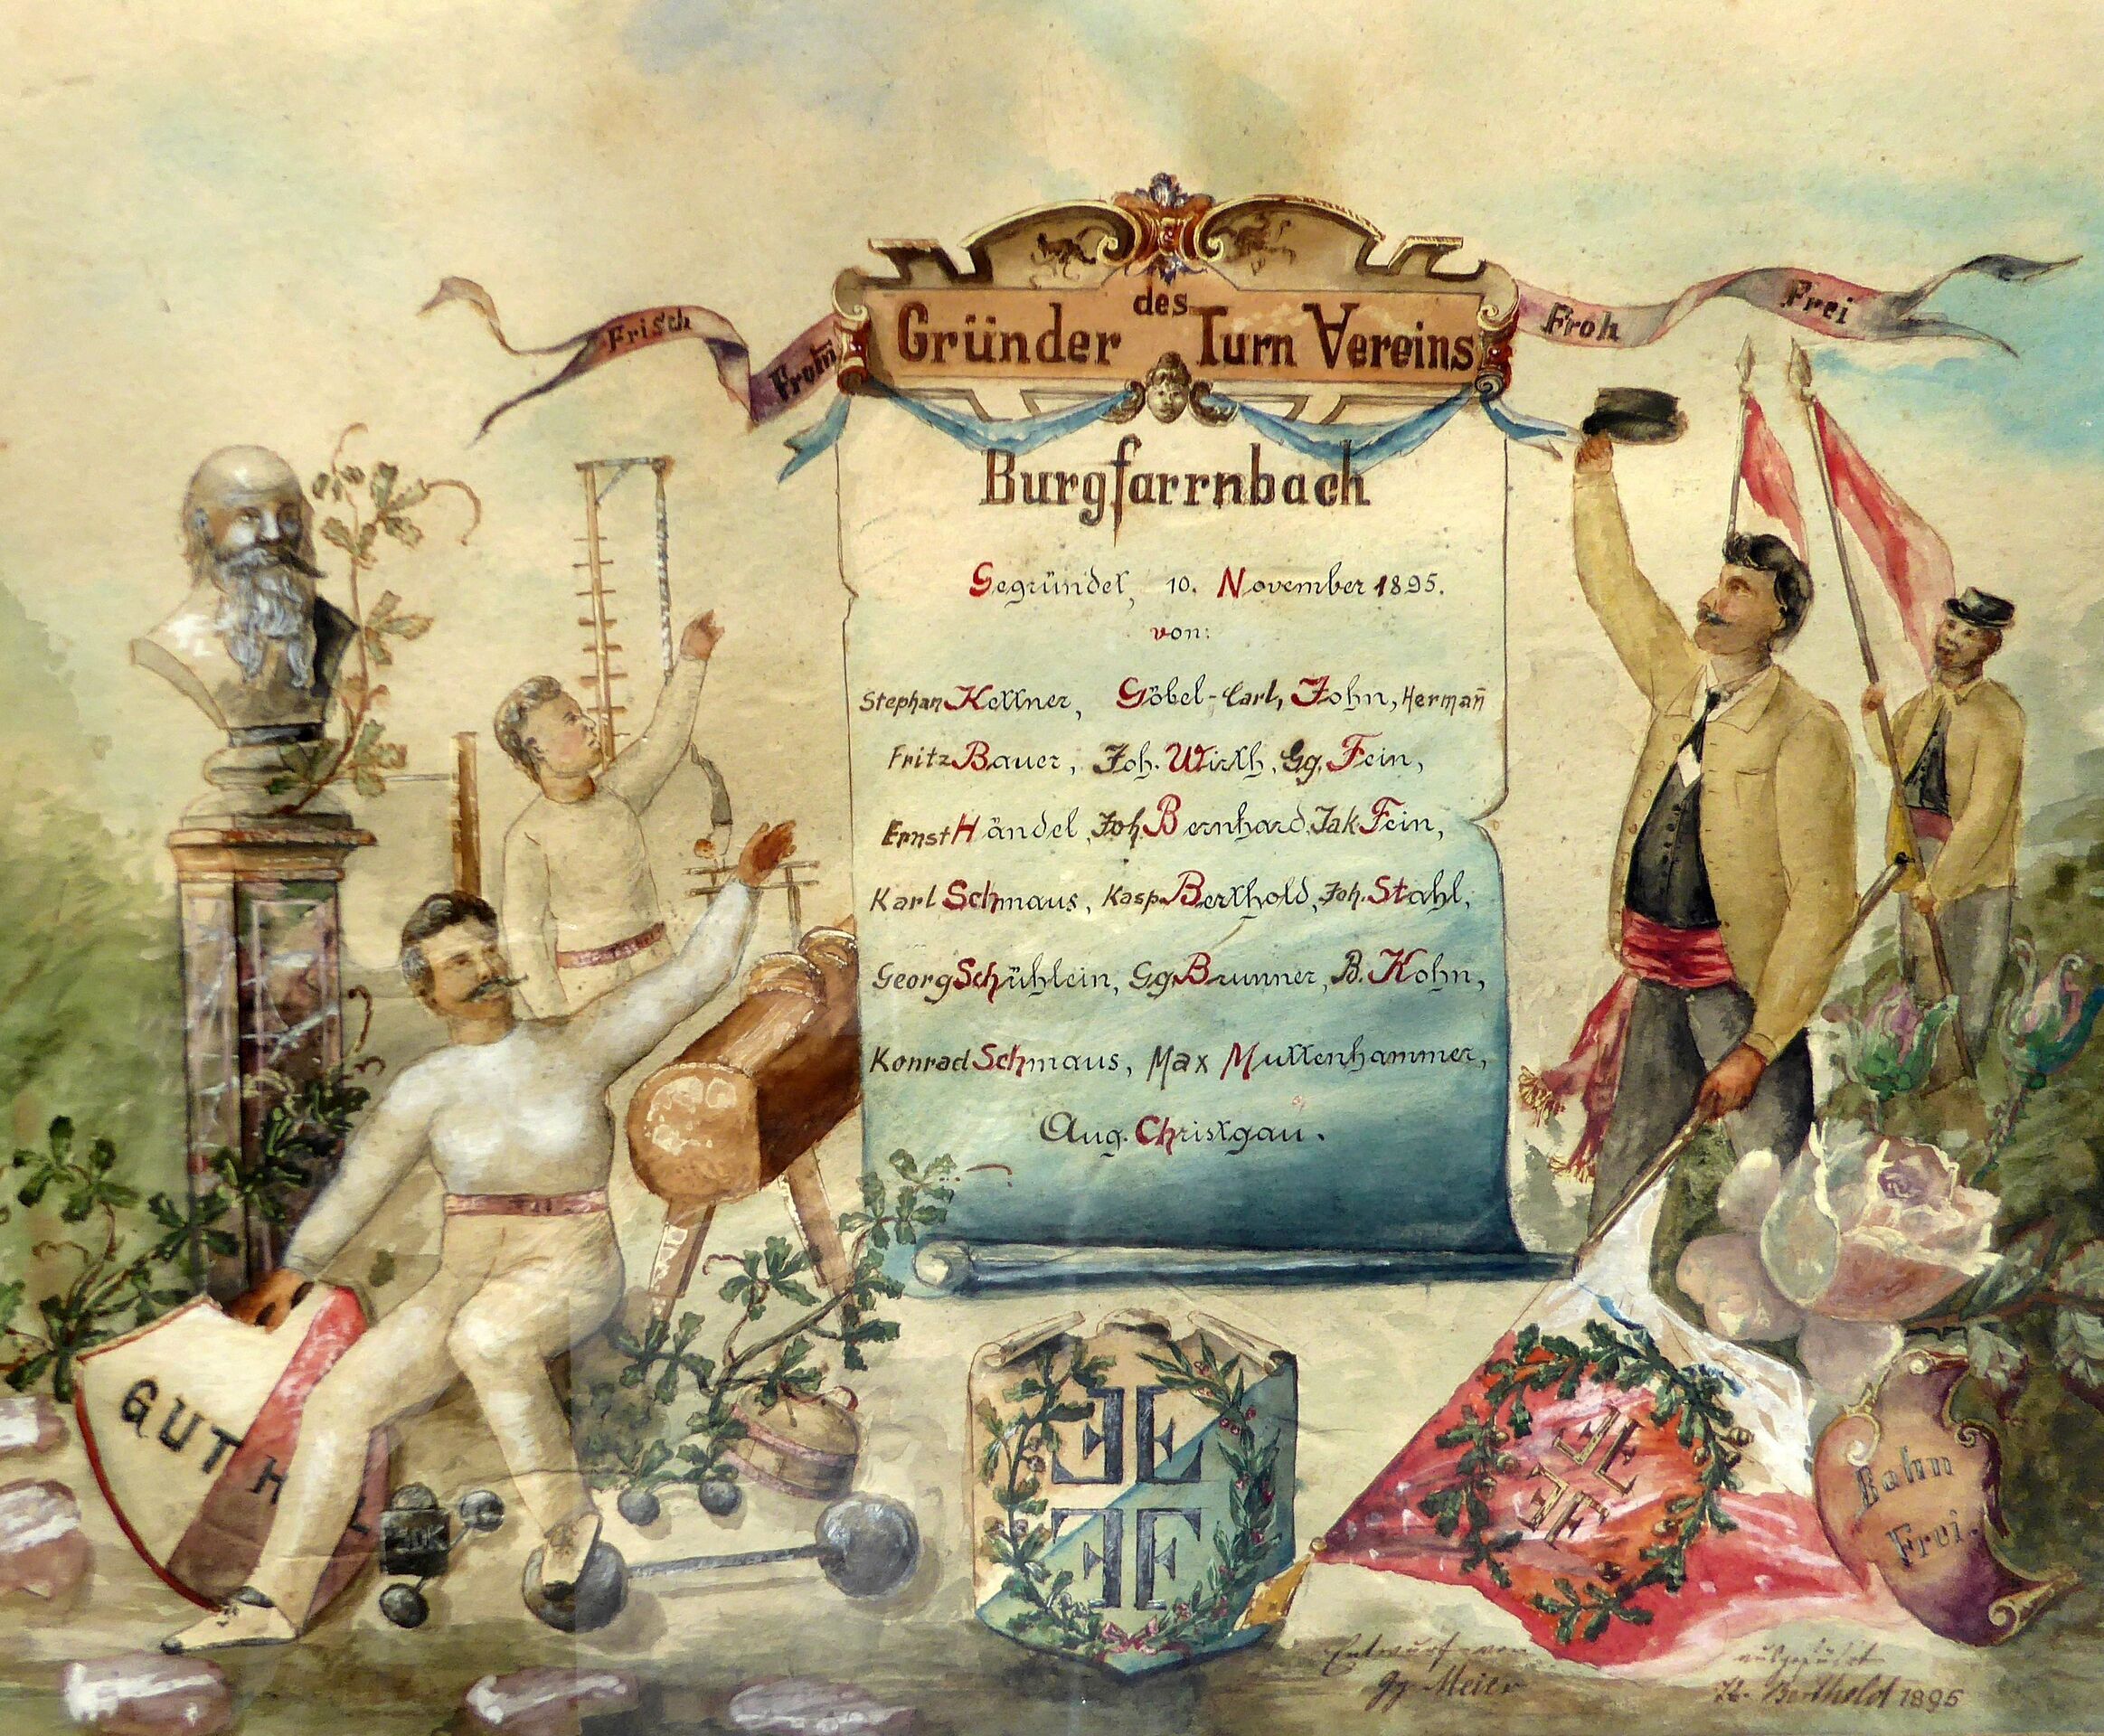 Frisch
Fromm
Froh
Frei
des
Gründer Turn Vereins
Burgfarrnbach
Gegründet, 10. November 1895.
von:
Stephan Kellner, Göbel-Carl, John, Hermann̄
Fritz Bauer, Joh. Wirth, Gg. Fein,
Ernst Händel, Joh. Bernhard, Jak. Fein,
Karl Schmaus, Kasp. Berthold, Joh. Stahl,
Georg Schühlein, Gg. Brunner, B. Kohn,
Konrad Schmaus, Max Muttenhammer,
Aug. Christgau.
GUT H
FF
FF
FF
FF
Bahn
Frei.
Entwurf von
Gg. Meier
ausgeführt
Berthold 1895